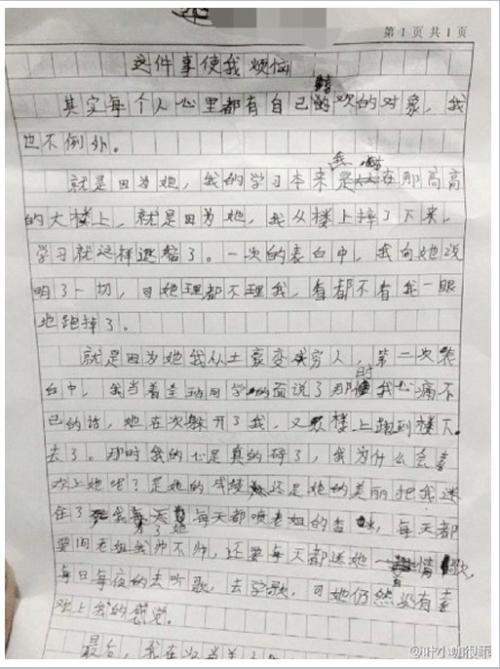 第1页 共1页
这件事使我烦恼
其实每个人心里都有自己喜欢的对象，我
也不例外。
就是因为她，我的学习本来是在那高高
的大楼上，就是因为她，我从楼上掉了下来，
学习就这样退落了。一次的表白中，我向她说
明了一切，可她理都不理我，看都不看我一眼
地跑掉了。
就是因为她我从土豪变成穷人，第二次表
白中，我当着全班同学的面说了那时我心痛不
已的话，她在次躲开了我，又从楼上跑到楼下
去了。那时我的心是真的碎了，我为什么会喜
欢上她呢？是她的成绩还是她的美丽把我迷
住了 每天都喷老姐的香 每天都
要问老姐我帅不帅，还要每天都送她一 情歌，
每日每夜的去听歌，去学歌，可她仍然没有喜
欢上我的感觉。
最后，我在